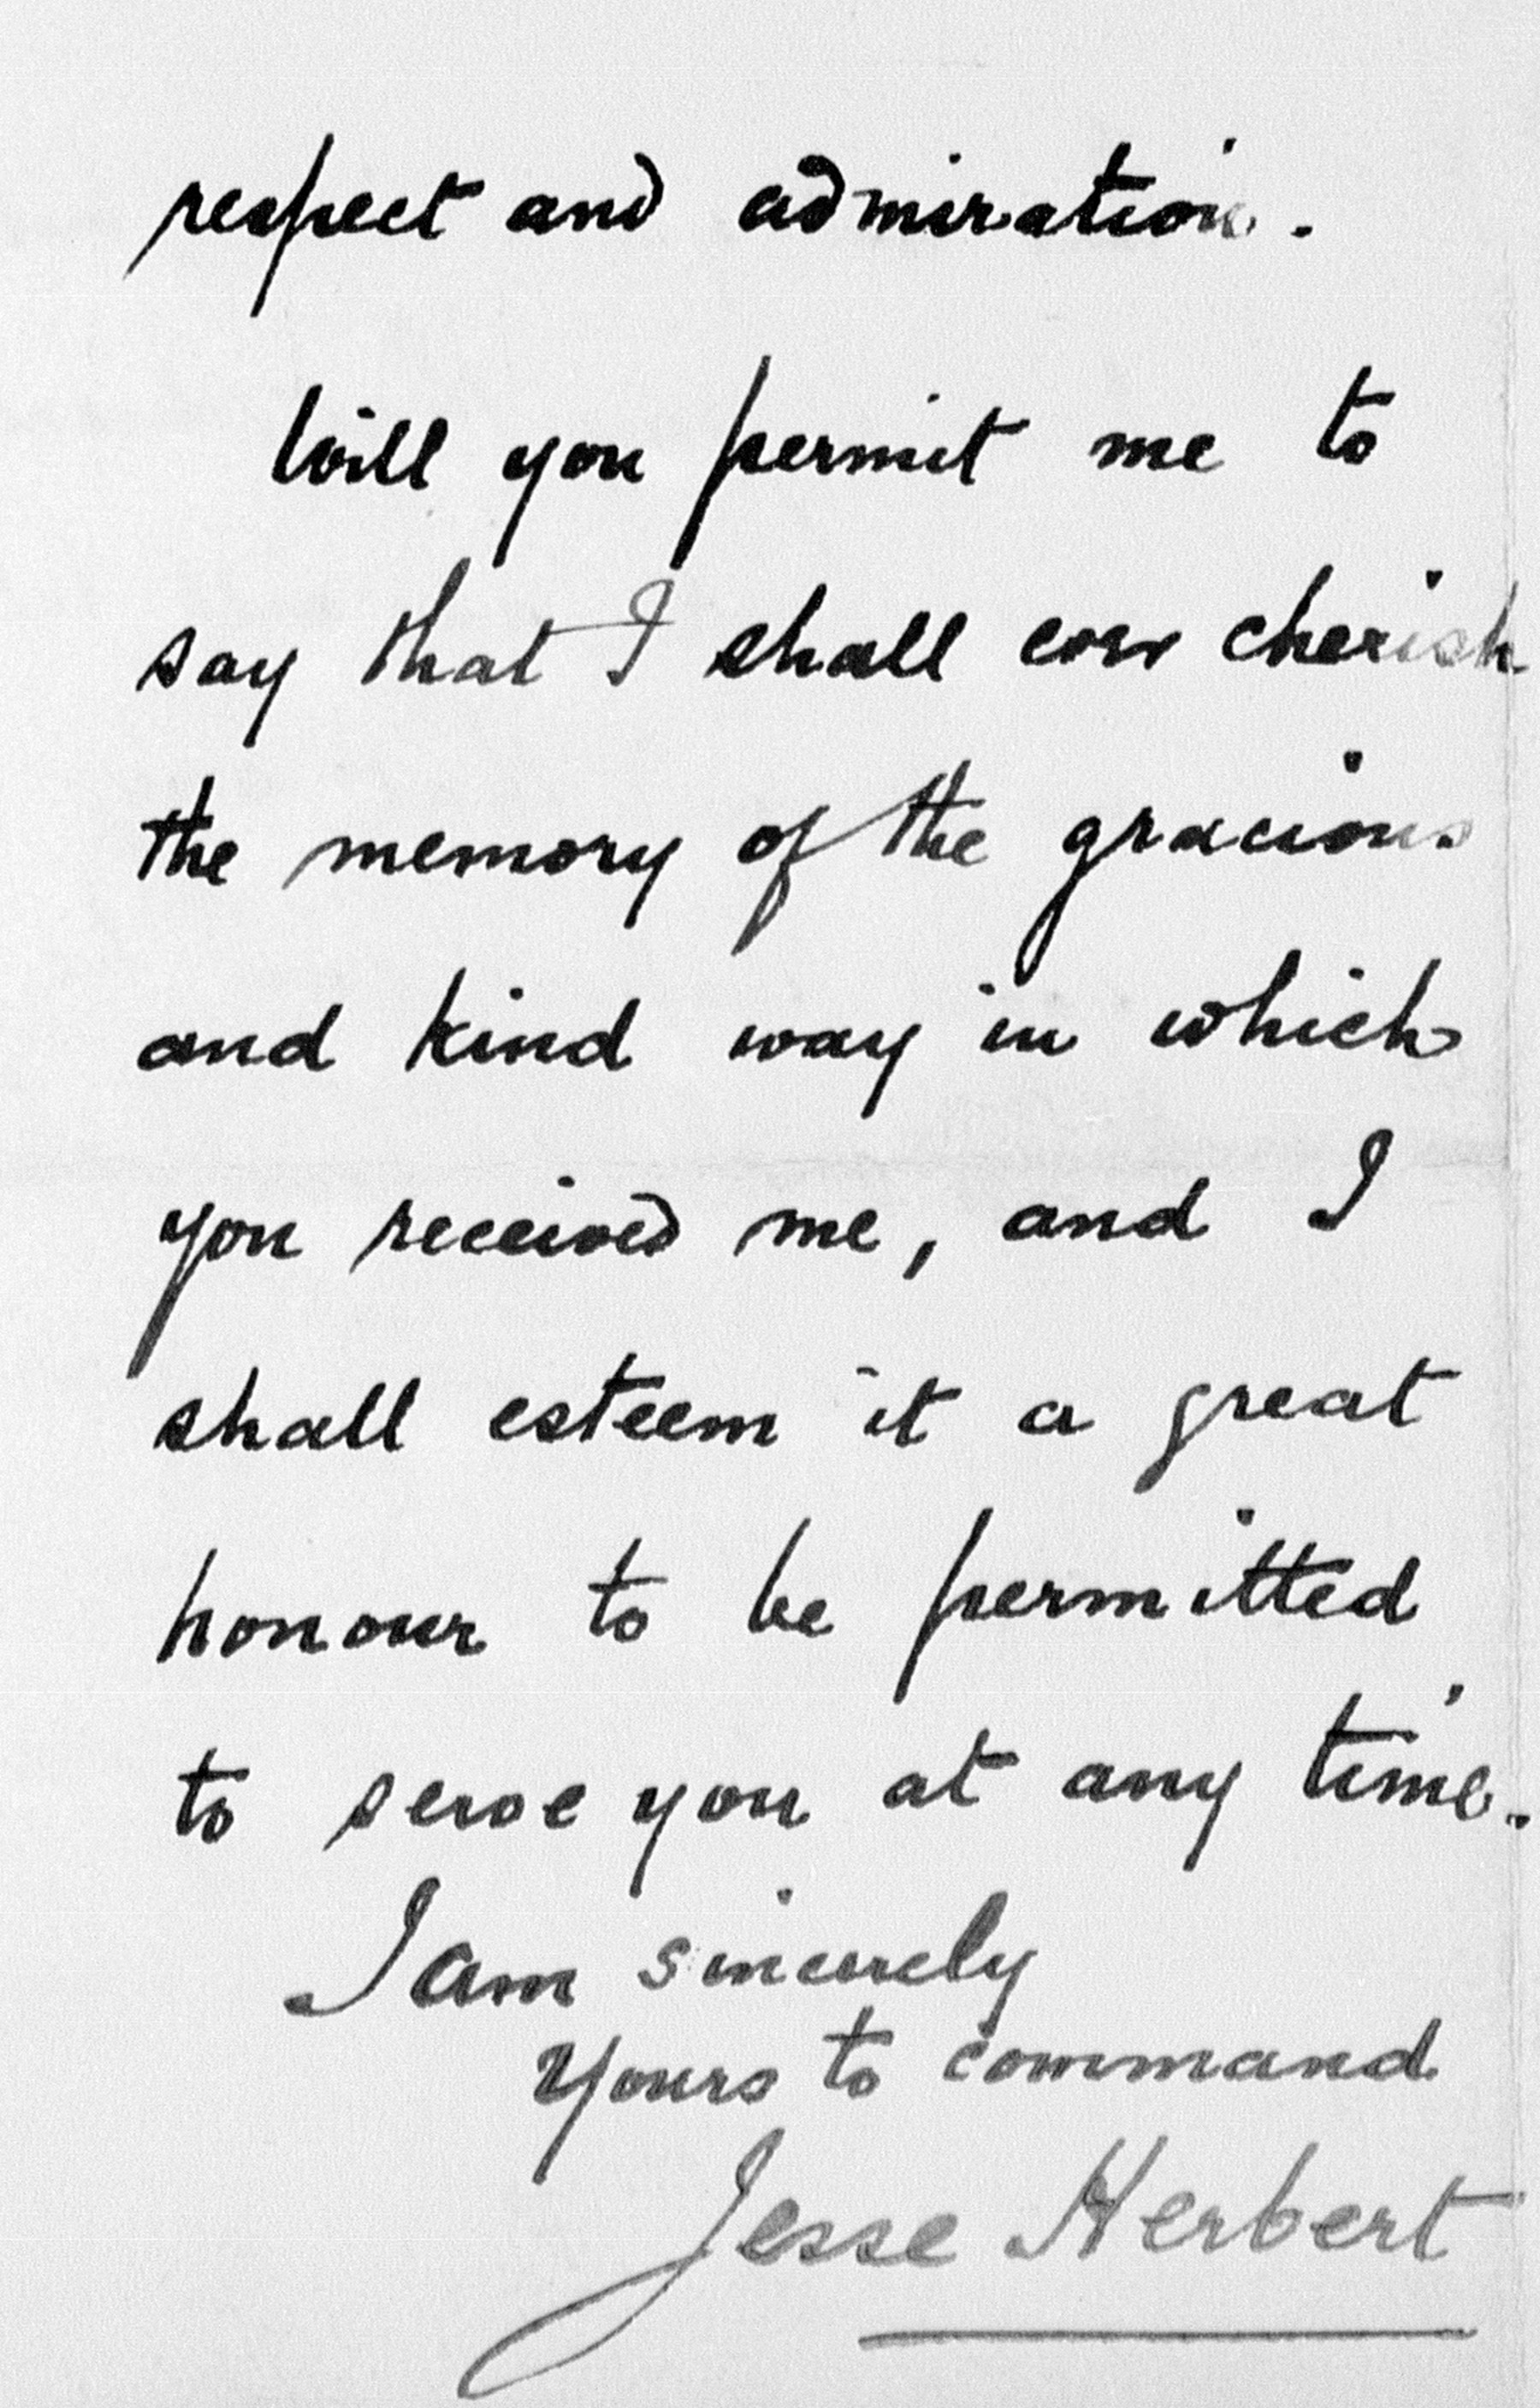 respect and admiration.
Will you permit me to
say that I shall ever cherish
the memory of the gracious
and kind way in which
you received me, and I
shall esteem it a great
honour to be permitted
to serve you at any time.
I am sincerely
Yours to command
Jesse Herbert